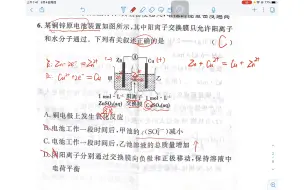 6. 某铜锌原电池装置如图所示,其中阳离子交换膜只允许阳离子
和水分子通过。下列有关叙述正确的是 ( C )
Zn-2e⁻=Zn²⁺
Cu²⁺+2e⁻=Cu
Zn(-) Cu(+)
Zn+Cu²⁺=Cu+Zn²⁺
甲 乙
1 mol·L⁻¹ 阳离子 1 mol·L⁻¹
ZnSO₄(aq) 交换膜 CuSO₄(aq)
A. 铜电极上发生氧化反应
B. 电池工作一段时间后,甲池的c(SO₄²⁻)减小
C. 电池工作一段时间后,乙池溶液的总质量增加
D. 阴阳离子分别通过交换膜向负极和正极移动,保持溶液中
电荷平衡